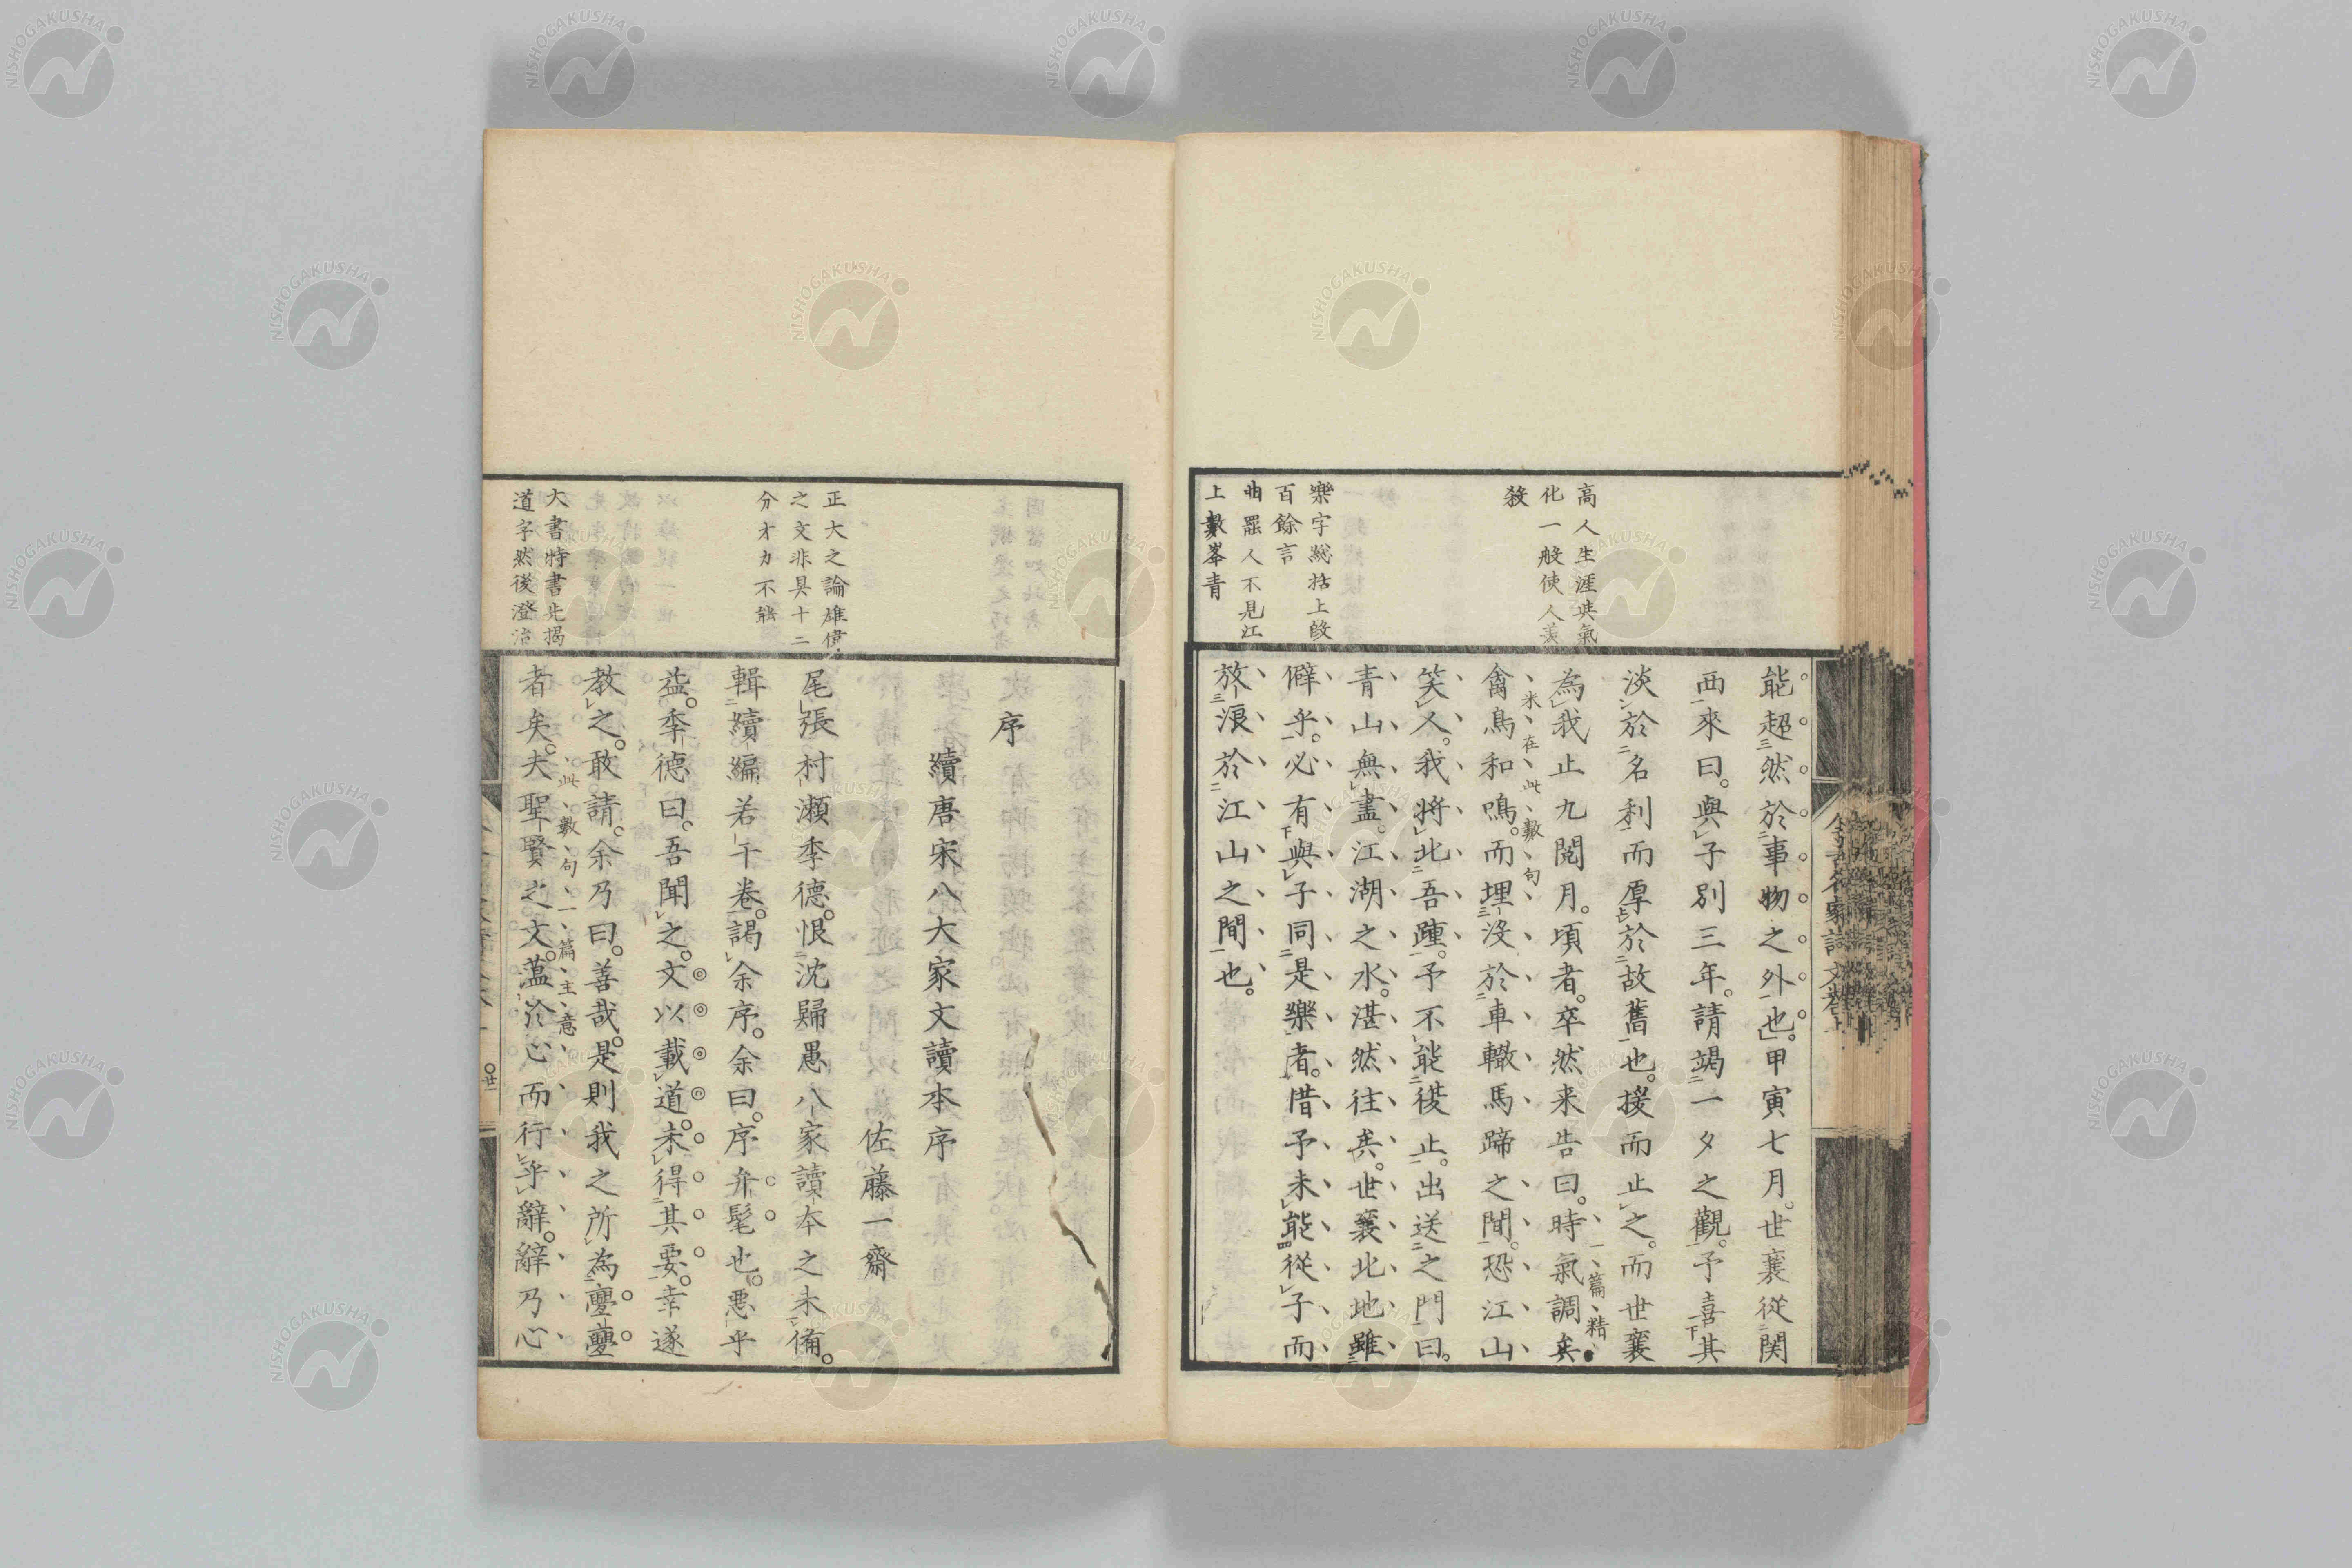 高人生涯與氣
化一般使人羨
殺
樂字總括上段
百餘言
曲罷人不見江
上數峯青
能超然於事物之外也。甲寅七月。世襄從関
西來曰。與子別三年。請竭一夕之觀。予喜其
淡於名利而厚於故舊也。援而止之。而世襄
為我止九閱月。頃者。卒然来告曰。時氣調矣
一篇精
禽鳥和鳴。而埋没於車轍馬蹄之間。恐江山
米在此數句
笑人。我將北吾踵。予不能復止。出送之門曰。
青山無盡。江湖之水。湛然往矣。世襄北地雖
僻乎。必有與子同是樂者。惜予未能從子而
放浪於江山之間也。
今古名家詩文
正大之論雄偉
之文非具十二
分才力不能
大書特書先揭
道字然後澄治
序
續唐宋八大家文讀本序
佐藤一齋
尾張村瀬季德。恨沈歸愚八家讀本之未備。
輯續編若干卷。謁余序。余曰。序弁髦也。惡乎
益。季德曰。吾聞之。文以載道。未得其要。幸遂
教之。敢請。余乃曰。善哉。是則我之所為亹亹
此數句一篇主意
者矣。夫聖賢之文。薀於心而行乎辭。辭乃心
廿一
NISHOGAKUSHA